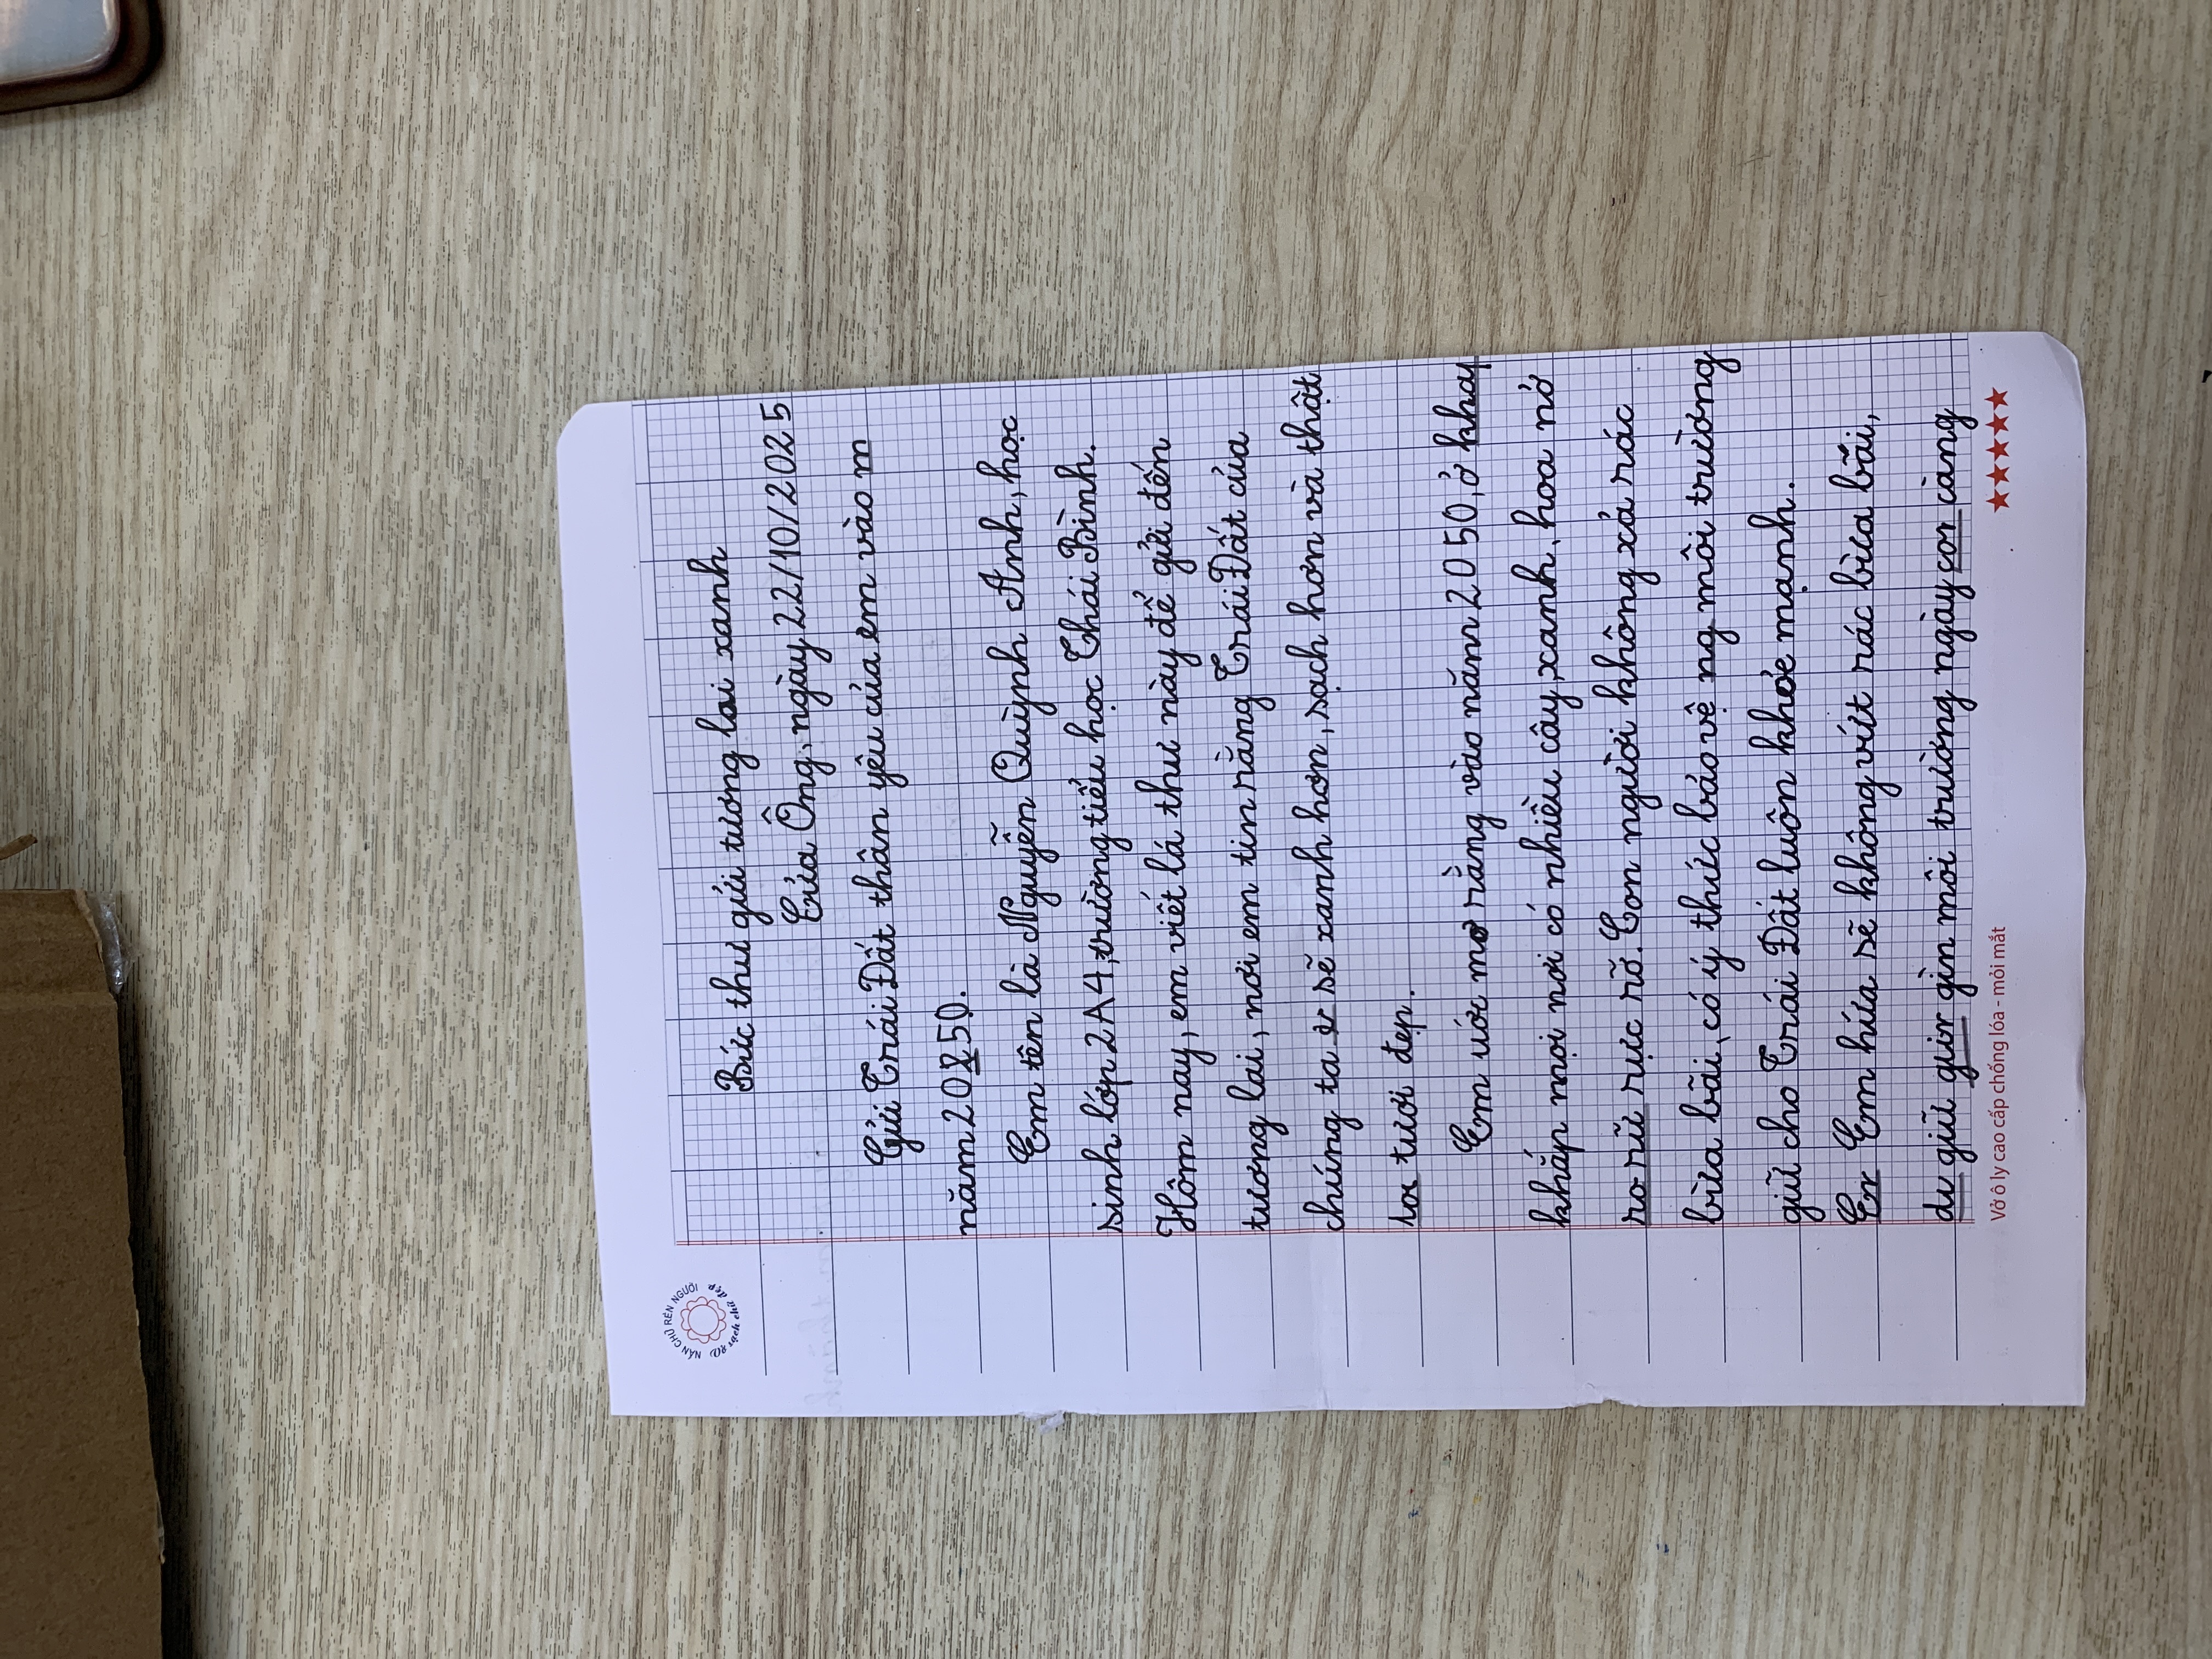 NẮN CHỮ RÈN NGƯỜI
Vở sạch chữ đẹp
Bức thư gửi tương lai xanh
Cửa Ông, ngày 22/10/2025
Gửi Trái Đất thân yêu của em vào m
năm 2050.
Em tên là Nguyễn Quỳnh Anh, học
sinh lớp 2A4, trường tiểu học Thái Bình.
Hôm nay, em viết lá thư này để gửi đến
tương lai, nơi em tin rằng Trái Đất của
chúng ta sẽ xanh hơn, sạch hơn và thật
tươi đẹp.
Em ước mơ rằng vào năm 2050, ở khắp
khắp mọi nơi có nhiều cây xanh, hoa nở
rực rỡ. Con người không xả rác
bừa bãi, có ý thức bảo vệ ng môi trường
giữ cho Trái Đất luôn khỏe mạnh.
Em hứa sẽ không vứt rác bừa bãi,
giữ gìn môi trường ngày càng
Vở ô ly cao cấp chống lóa - mỏi mắt
★★★★★